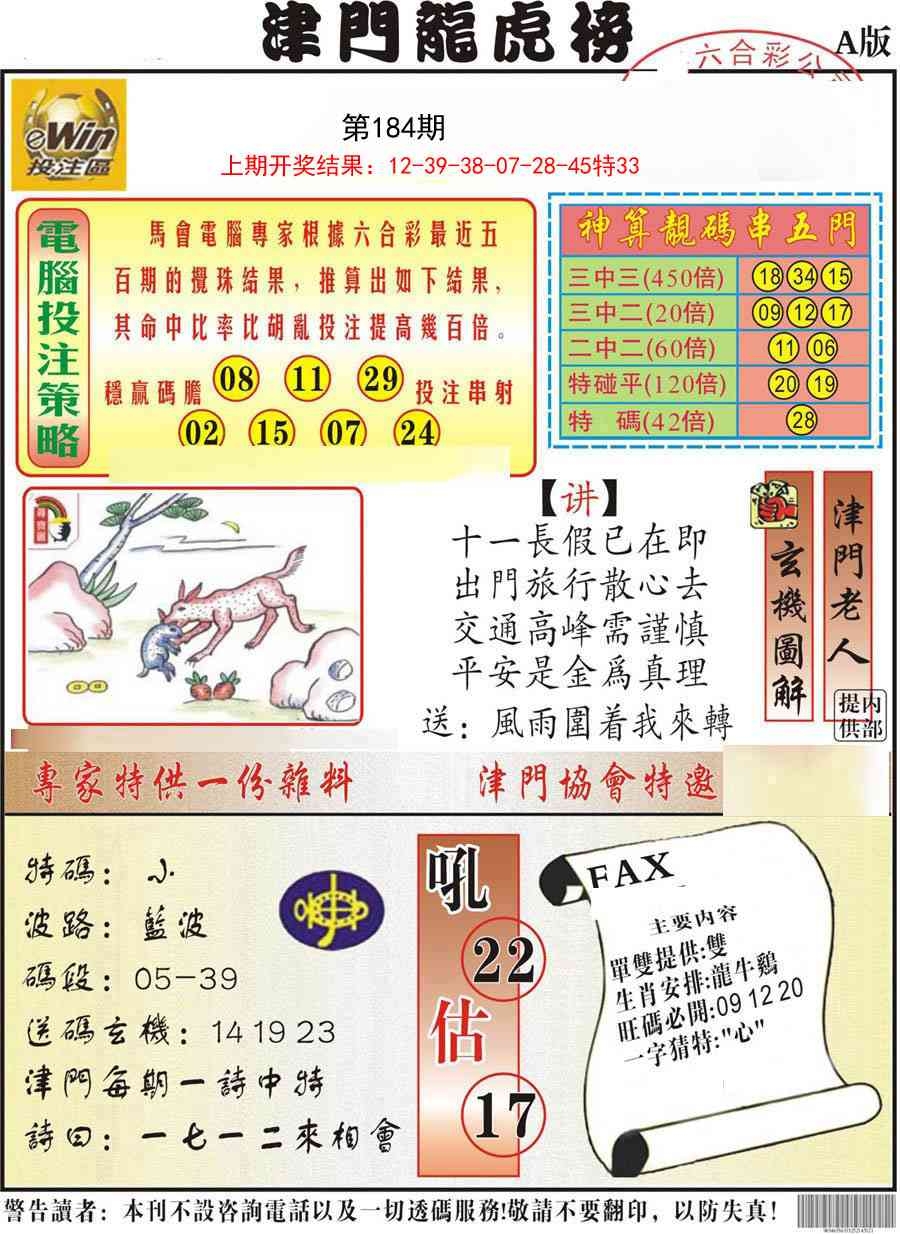 津門龍虎榜
A版
六合彩公
eWin
投注區
第184期
上期开奖结果：12-39-38-07-28-45特33
電腦投注策略
馬會電腦專家根據六合彩最近五
百期的攪珠结果，推算出如下结果，
其命中比率比胡亂投注提高幾百倍。
穩贏碼膽 08 11 29 投注串射
02 15 07 24
神算靚碼串五門
三中三(450倍) 18 34 15
三中二(20倍) 09 12 17
二中二(60倍) 11 06
特碰平(120倍) 20 19
特 碼(42倍) 28
【讲】
十一長假已在即
出門旅行散心去
交通高峰需謹慎
平安是金爲真理
送：風雨圍着我來轉
玄機圖解
津門老人
内部提供
專家特供一份雜料
津門協會特邀
特碼：小
波路：藍波
碼段：05-39
送碼玄機：14 19 23
津門每期一詩中特
詩曰：一七一二來相會
吼
22
估
17
FAX
主要内容
單雙提供:雙
生肖安排:龍牛鷄
旺碼必開:09 12 20
一字猜特:"心"
警告讀者：本刊不設咨詢電話以及一切透碼服務!敬請不要翻印，以防失真！